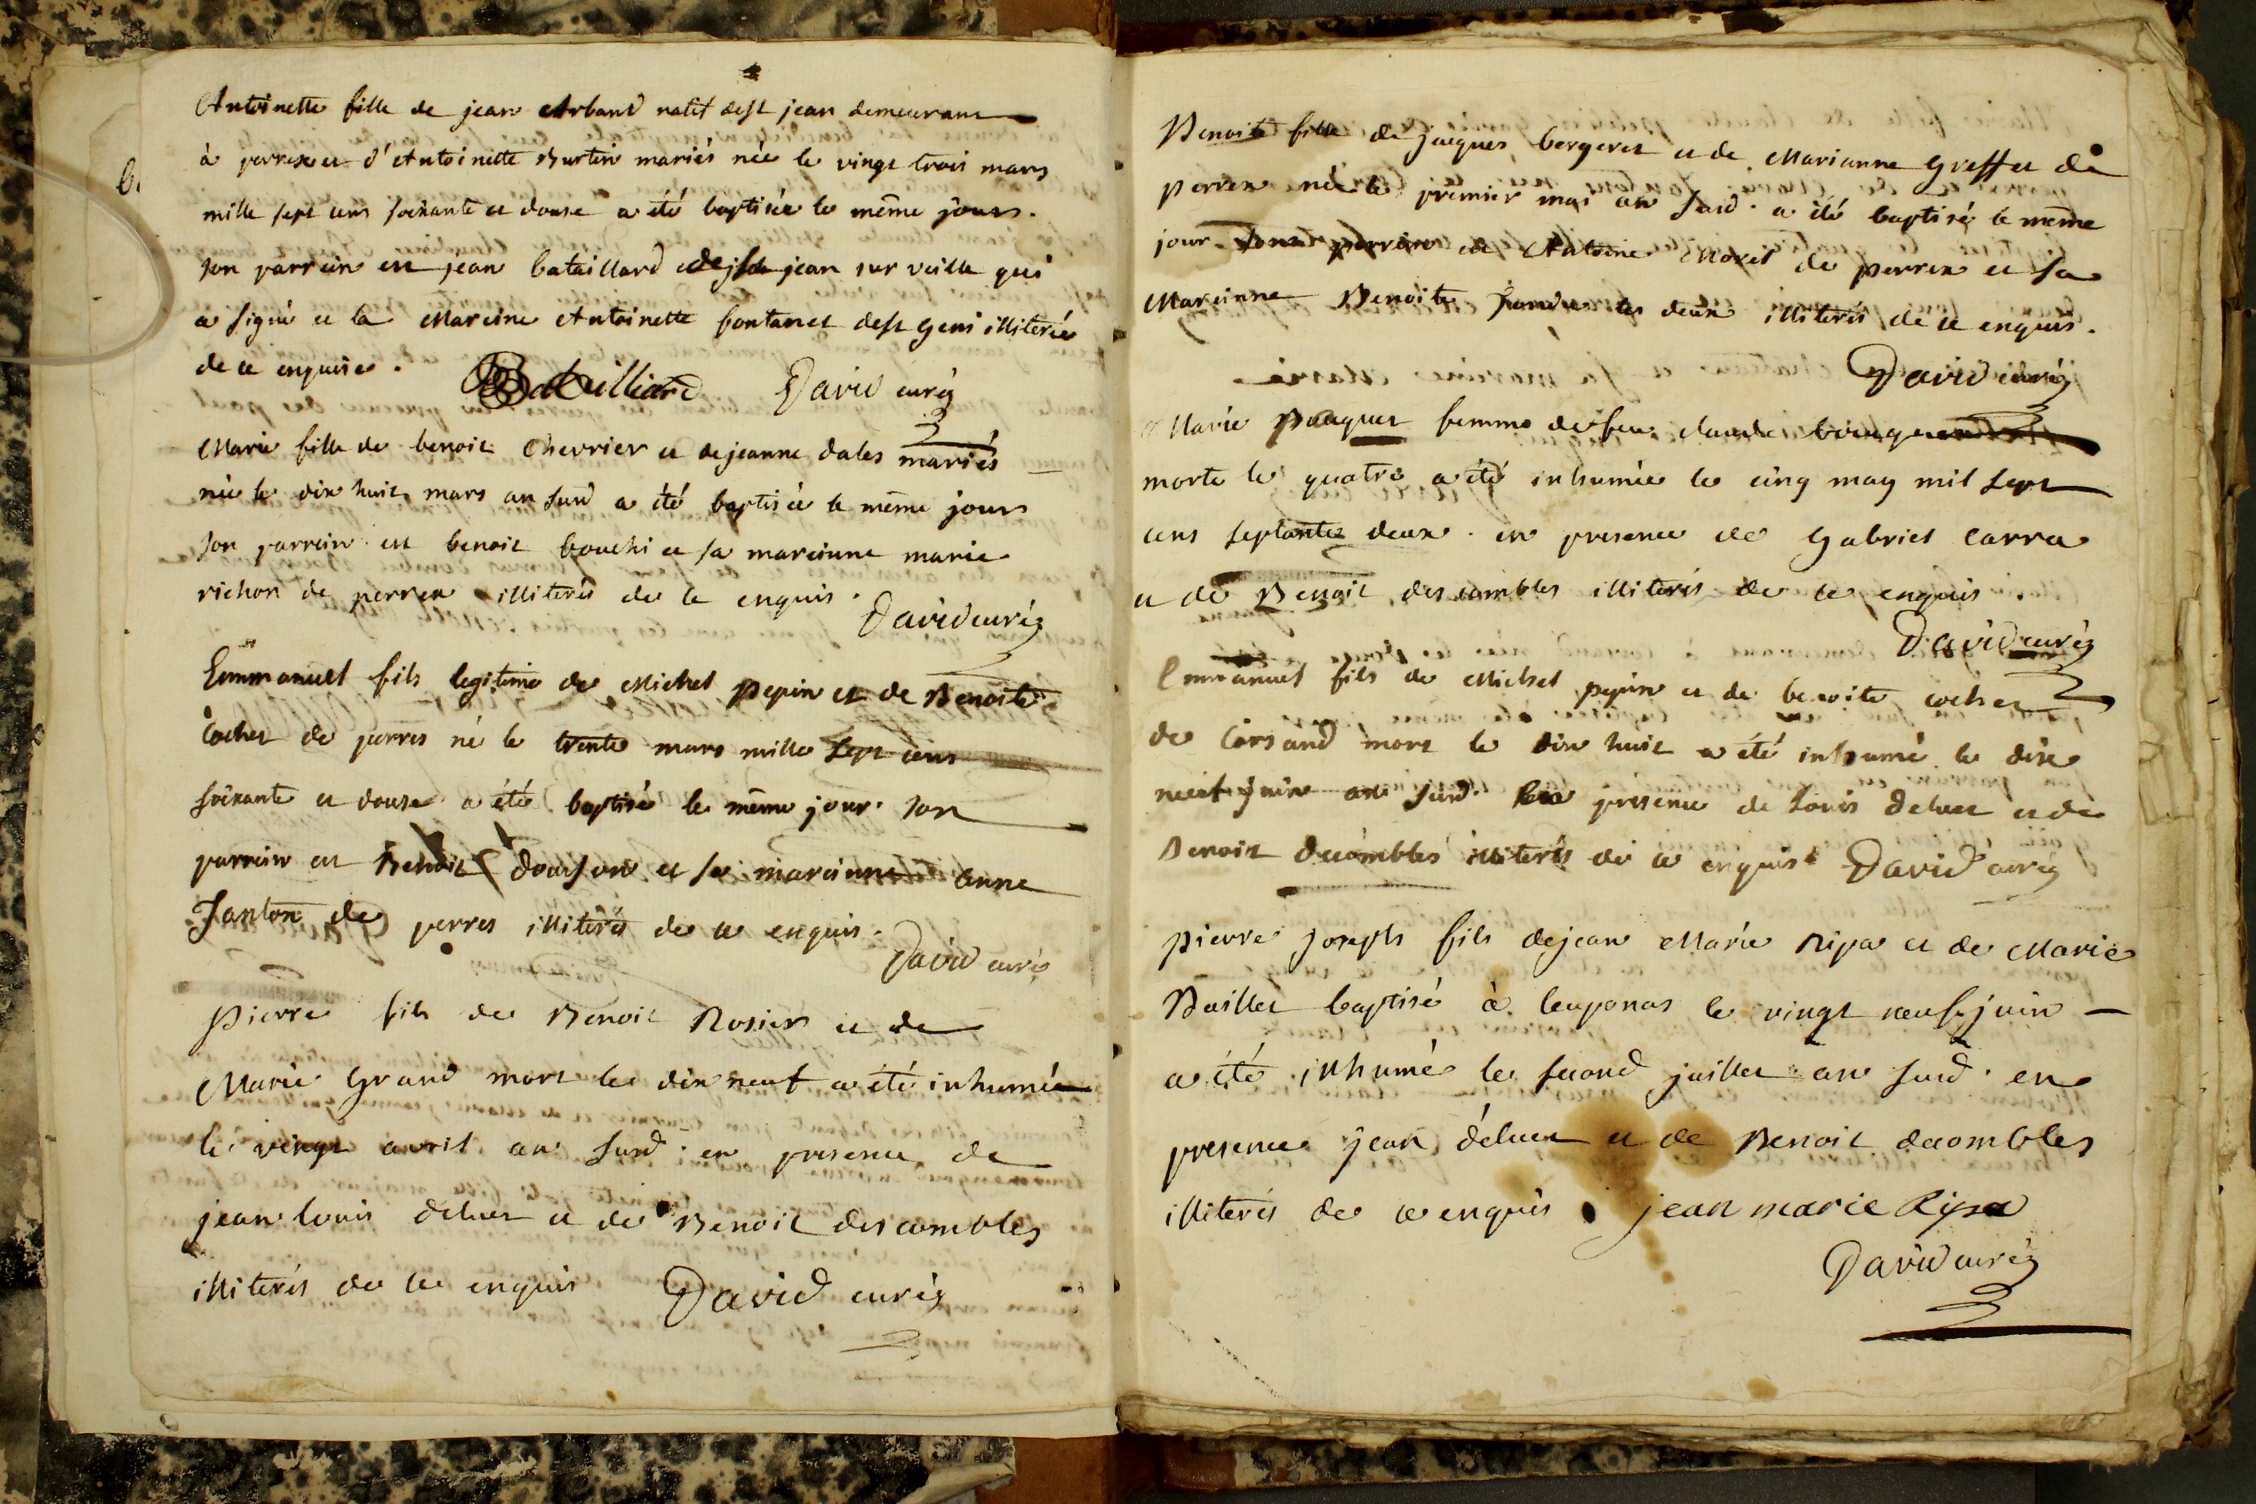 Antoinette fille de jean Arband natif dest jean demeurant
à perrex et d'Antoinette Burtin mariés née le vingt trois mars
mille sept cens soixante et douse a été baptisée le même jours.
son parrein est jean bataillard de st jean sur veille qui
a signé et la Mareine Antoinette fontanet dest geni illiterée
de ce enquise.
Batailliard David curéz
Marie fille de benoit Chevrier et de jeanne dales mariés
née le dix huit mars an susd a été baptisée le même jours
son parrein est benoit bouchi et sa mareinne marie
richon de perrex illiterés de ce enquis.
David curéz
Emmanuel fils legitime de Michel pepin et de Benoite
Cochet de perres né le trente mars mille sept cens
soixante et douse a été baptisé le même jour. son
parrein est Benoit dousson et sa mareinne anne
Janton de perres illiterés de ce enquis.
David curé
pierre fils de Benoit Rosier et de
Marie Grand mort le dix neuf a été inhumée
le vingt avril an susd. en presence de
jean louis deluet et de Benoit descombles
illiterés de ce enquis David curéz
Benoite fille de jacques bergeret et de Marianne Greffet de
perrex née le premier mai an susd. a été baptisé le même
jour son parrein est Antoine Moret de perrex et sa
Mareinne Benoite les deux illiterés de ce enquis.
David curéz
Marie pauquet femme de feu claude
morte le quatre a été inhumée le cinq may mil sept
cens septante deux. en presence de Gabriel Carra
et de Benoit descombles illiterés de ce enquis.
David curéz
Emmanuel fils de Michel pepin et de benoite cochet
de Corsand mort le dix huit a été inhumé le dixe
neuf juin an susd. en presence de Louis deluet et de
Benoit decombles illiterés de ce enquis David curéz
pierre joseph fils de jean Marie Ripa et de Marie
Baillet baptisé à leuponas le vingt neuf juin
a été inhumé le second juillet an susd. en
presence jean déluet et de Benoit decombles
illiterés de ce enquis jean marie Ripa
David curéz